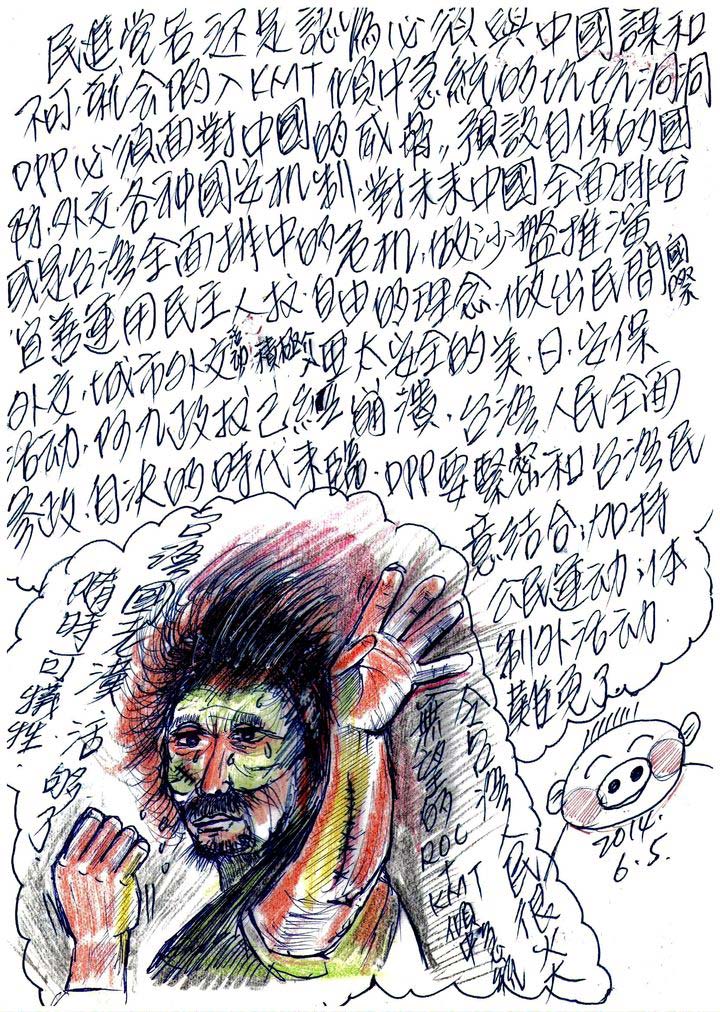 民進党若还是認為必須與中國謀和
不可.就会陷入KMT傾中急統的坑坑洞洞
DPP必須面對中國的威脅,,預設自保的國
防.外交各种國安机制.對未來中國全面排台
或是台湾全面排中的危机.做沙盤推演
宜善運用民主人权.自由的理念.做出民間國際
外交.城市外交.積極介入亞太安全的美.日.安保
活动.阿九政权已經崩潰.台湾人民全面
参政.自決的時代來臨.DPP要緊密和台湾民
意結合;加持
公民運动;体
制外活动.
難免了
台湾國老漢活够了
隨時可犧牲
全台湾人民很火大
無望的ROC+KMT傾中急統
2014.
6.5.